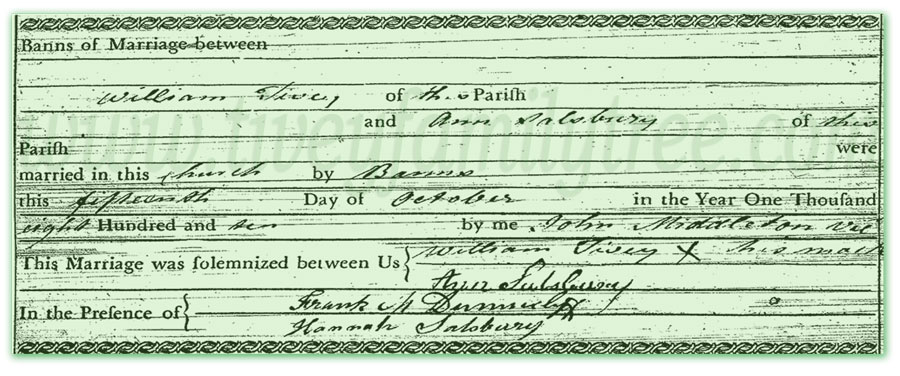 Banns of Marriage between
William Tivey of this Pariſh
and Ann Salsbury of this
Pariſh were
married in this church by Banns
this fifteenth Day of October in the Year One Thouſand
eight Hundred and ten by me John Middleton Vic
This Marriage was ſolemnized between Us { William Tivey X his mark
Ann Salsbury
In the Preſence of { Frank M
Hannah Salsbury
www.tiveyfamilytree.com